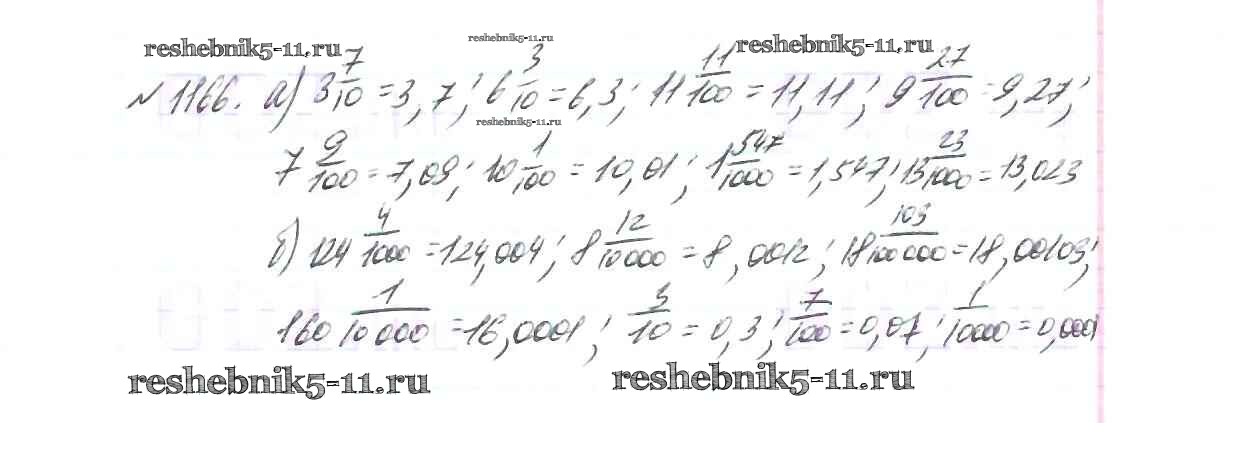 reshebnik5-11.ru reshebnik5-11.ru reshebnik5-11.ru
№ 1166. а) 3 7/10 = 3,7; 6 3/10 = 6,3; 11 11/100 = 11,11; 9 27/100 = 9,27;
reshebnik5-11.ru
7 9/100 = 7,09; 10 1/100 = 10,01; 1 547/1000 = 1,547; 13 23/1000 = 13,023
б) 124 4/1000 = 124,004; 8 12/10000 = 8,0012; 18 103/100000 = 18,00103;
160 1/10000 = 16,0001; 3/10 = 0,3; 7/100 = 0,07; 1/10000 = 0,0001
reshebnik5-11.ru reshebnik5-11.ru